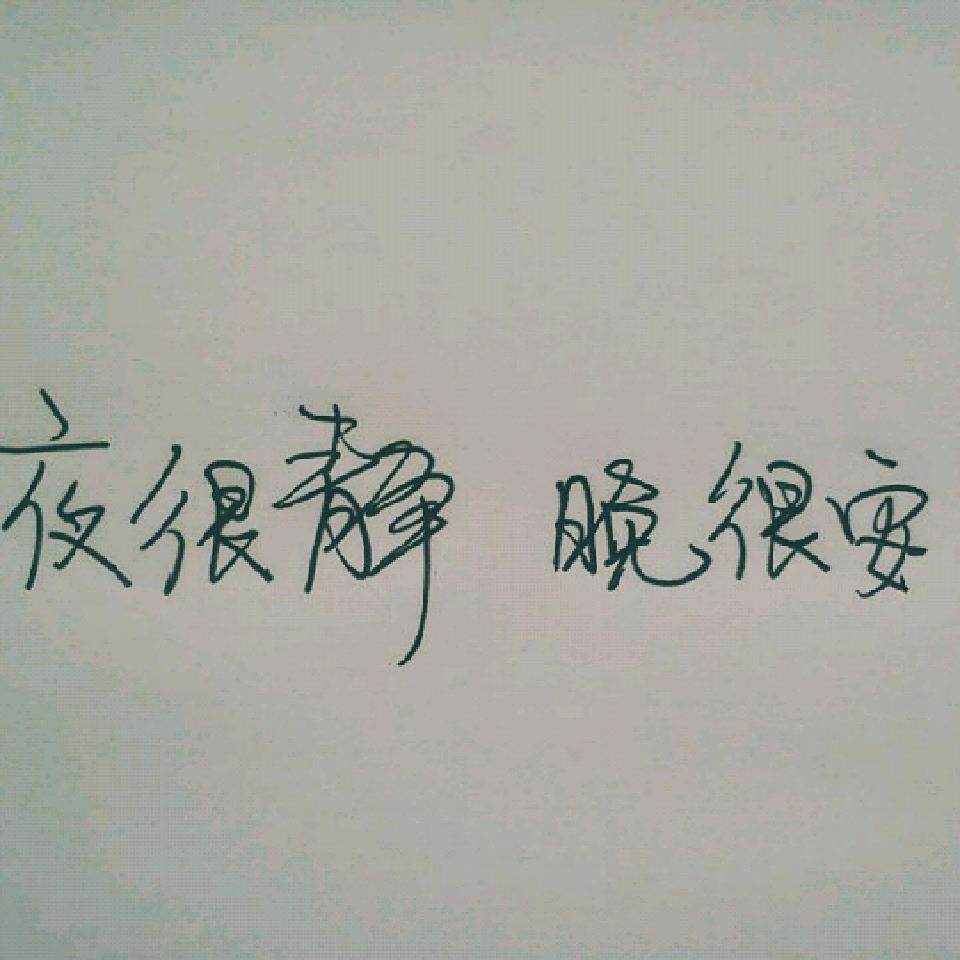 夜很静 晚很安